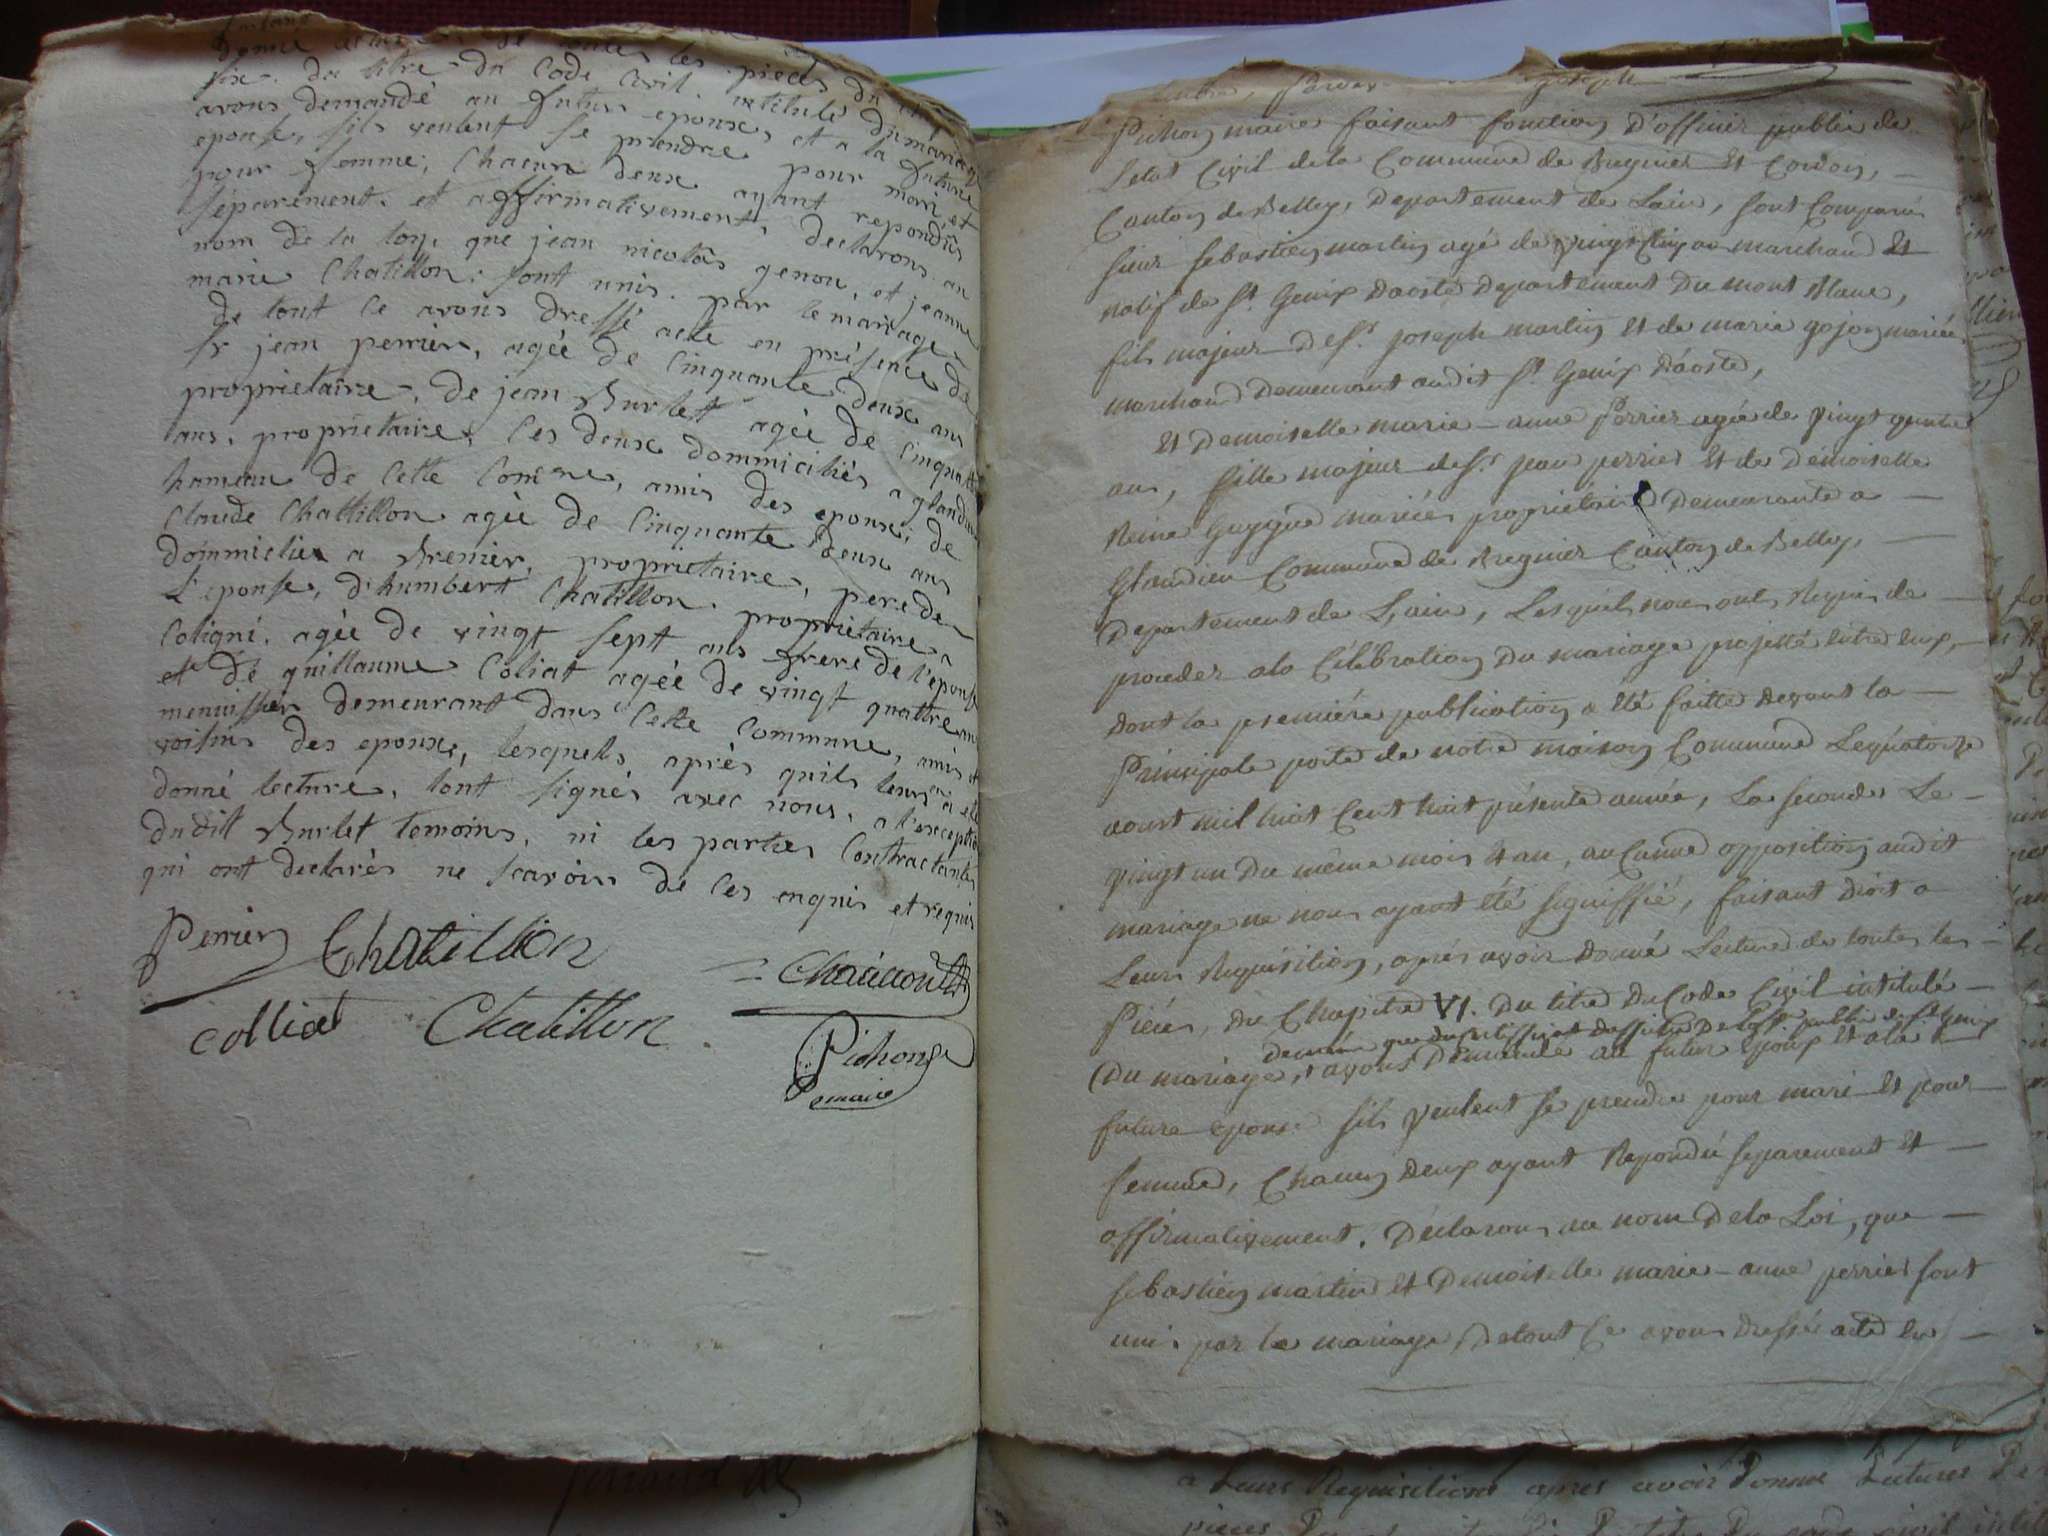 donné lecture de toutes les pieces du
six. du titre du Code Civil. intitulé du mariage
avons demandé au futur epoux, et a la future
epouse, sils veulent se prendre pour mari et
pour femme; Chacun deux ayant repondus
séparement. et affirmativement, declarons. au
nom de la loy, que jean nicolas genou, et jeanne
marie Chatillon. sont unis. par le mariage,
de tout ce avons dressé acte en présence de
sr jean perrier, agée de Cinquante deux ans
proprietaire, de jean Burlet agée de Cinquante
ans, proprietaire, les deux dommiciliés a glandieu
hameau de Cette Comune, amis des epoux; de
Claude Chattillon agée de Cinquante deux ans
dommicilier a Brenier, proprietaire, pere de
L'epouse, d'humbert Chatillon. proprietaire a
Coligni. agée de vingt sept ans frere de l'epouse
et de guillaume Coliat agée de vingt quattre ans
menuissier demeurant dans Cette Commune, amis et
voisins des epoux, lesquels après quils leurs en a été
donné lecture, lont signés avec nous, a l'exception
dudit Burlet temoins, ni les parties Contractantes
qui ont declarés ne scavoir de Ces enquis et requis
Perrier Chatillon
= Chaucoult
Colliat Chatillon
Pichon
maire
joseph
Pichon maire faisant fonction d'officier public de
Letat Civil de la Commune de Bregnier Et Cordon, —
Canton de Belley, Departement de Lain, sont Comparus
sieur sebastien martin agé de vingt Cinq an marchand Et
natif de St. Genix Daoste Departement Du mont Blanc,
fils majeur De Sr. joseph martin Et de marie gojon mariée
marchand Demeurant audit St. Genix D'aoste,
Et Demoiselle marie-anne Perrier agée de vingt quatre
ans, fille majeur de Sr. jean perrier Et de Demoiselle
Reine Guygue mariés proprietaire Demeurante a —
Glandieu Commune de Bregnier Canton de Belley, —
Departement de L'ain, Lesquels nous ont Requis de —
proceder a la Célébration Du mariage projetté Entre Eux, —
Dont la première publication a été faitte Devant la —
Principale porte de notre maison Commune Le quatorze
aoust mil huit Cent huit présente année, La seconde Le —
vingt un Du même mois Et an, aucunne opposition audit
mariage ne nous ayant été signiffié, faisant Droit a
Leurs Requisition, après avoir Donné Lecture de toutes les —
Piéces, du Chapitre VI. Du titre Du Code Civil intitulé —
De même que du Certifficat de Lofficier public de St Genix
Du mariage, avons Demandé au futur Epoux Et a la
future Epouse sils veulent se prendre pour mari Et pour —
femme, Chacun Deux ayant Repondu separement Et —
affirmativement. Déclarons au nom De la Loi, que —
sebastien martin Et Demoiselle marie-anne perrier sont
unis par le mariage, De tout Ce avons Dressé acte En —
a Leurs Requisitions apres avoir Donné Lecture De